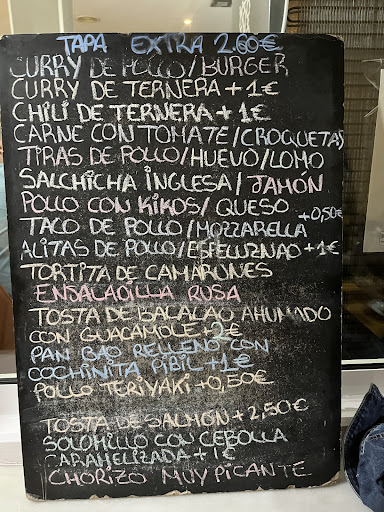 TAPA EXTRA 2.60€
CURRY DE POLLO/BURGER
CURRY DE TERNERA + 1€
CHILI DE TERNERA + 1€
CARNE CON TOMATE/CROQUETAS
TIRAS DE POLLO/HUEVO/LOMO
SALCHICHA INGLESA/JAMÓN
POLLO CON KIKOS/QUESO +0,50€
TACO DE POLLO/MOZZARELLA
ALITAS DE POLLO/ESPELUZNAO +1€
TORTITA DE CAMARONES
ENSALADILLA RUSA
TOSTA DE BACALAO AHUMADO
CON GUACAMOLE +2€
PAN BAO RELLENO CON
COCHINITA PIBIL +1€
POLLO TERIYAKI +0,50€
TOSTA DE SALMÓN + 2,50€
SOLOMILLO CON CEBOLLA
CARAMELIZADA + 1€
CHORIZO MUY PICANTE